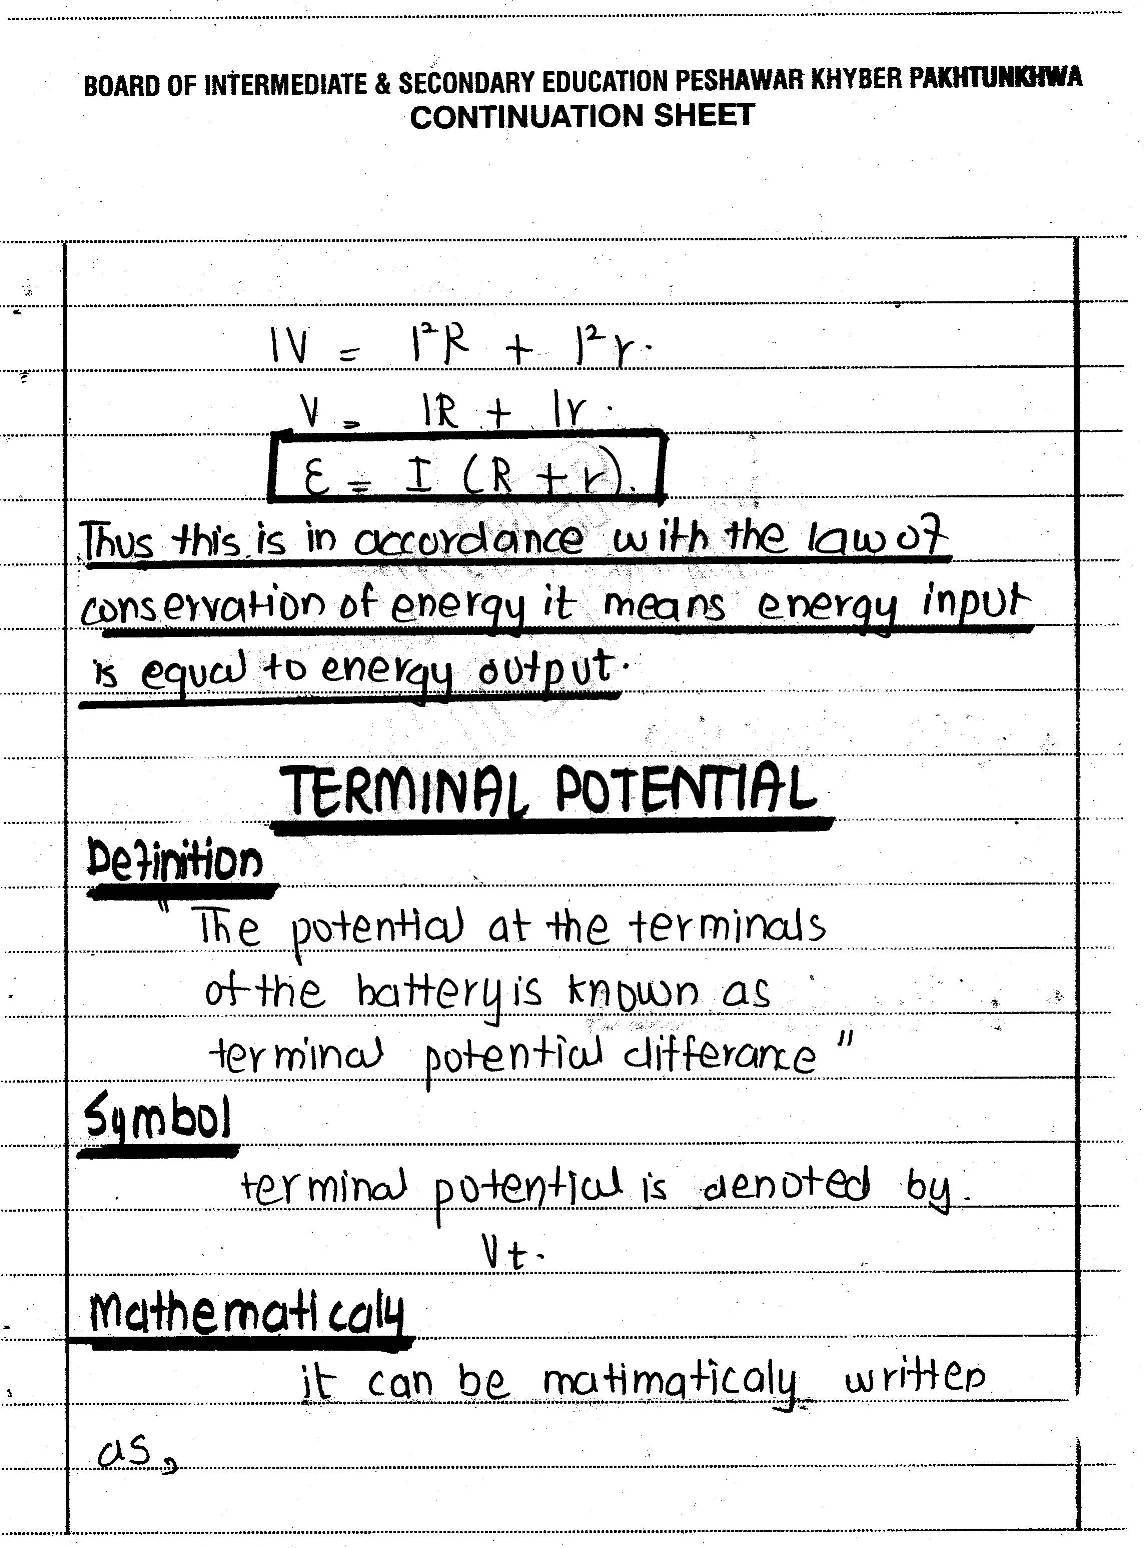 BOARD OF INTERMEDIATE & SECONDARY EDUCATION PESHAWAR KHYBER PAKHTUNKHWA
CONTINUATION SHEET
IV = I²R + I²r.
V = IR + Ir.
ε = I (R + r).
Thus this is in accordance with the law of
conservation of energy it means energy input
is equal to energy output.
TERMINAL POTENTIAL
Definition
"The potential at the terminals
of the battery is known as
terminal potential differance"
Symbol
terminal potential is denoted by.
Vt.
Mathematicaly
it can be matimaticaly written
as,